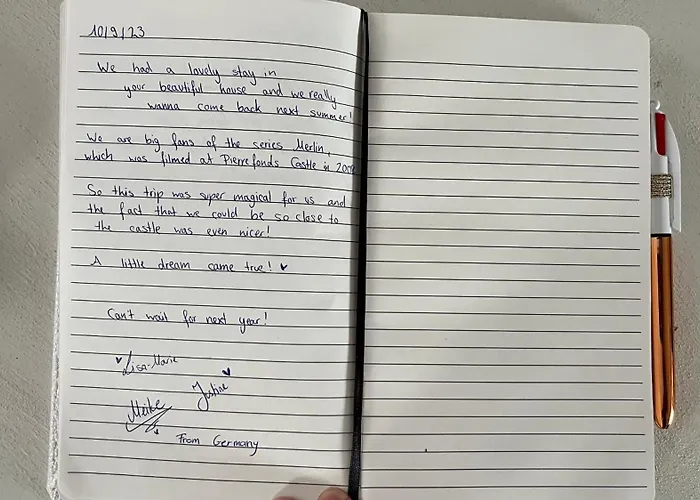 10/9/23
We had a lovely stay in
your beautiful house and we really
wanna come back next summer!
We are big fans of the series Merlin,
which was filmed at Pierrefonds Castle in 2008
So this trip was super magical for us and
the fact that we could be so close to
the castle was even nicer!
A little dream came true! ♥
Can't wait for next year!
♥ Lisa-Marie
Justine ♥
Meike
From Germany